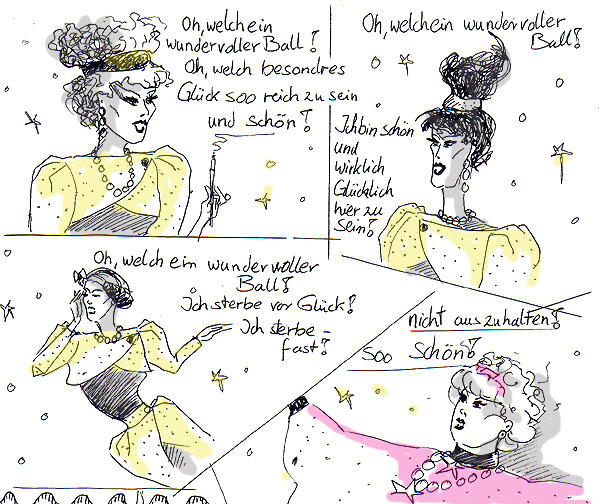 Oh, welch ein
wundervoller Ball!
Oh, welch besondres
Glück soo reich zu sein
und schön!
Oh, welch ein wundervoller
Ball!
Ich bin schön
und
wirklich
Glücklich
hier zu
sein!
Oh, welch ein wundervoller
Ball!
Ich sterbe vor Glück!
Ich sterbe -
fast!
nicht auszuhalten!
soo schön!